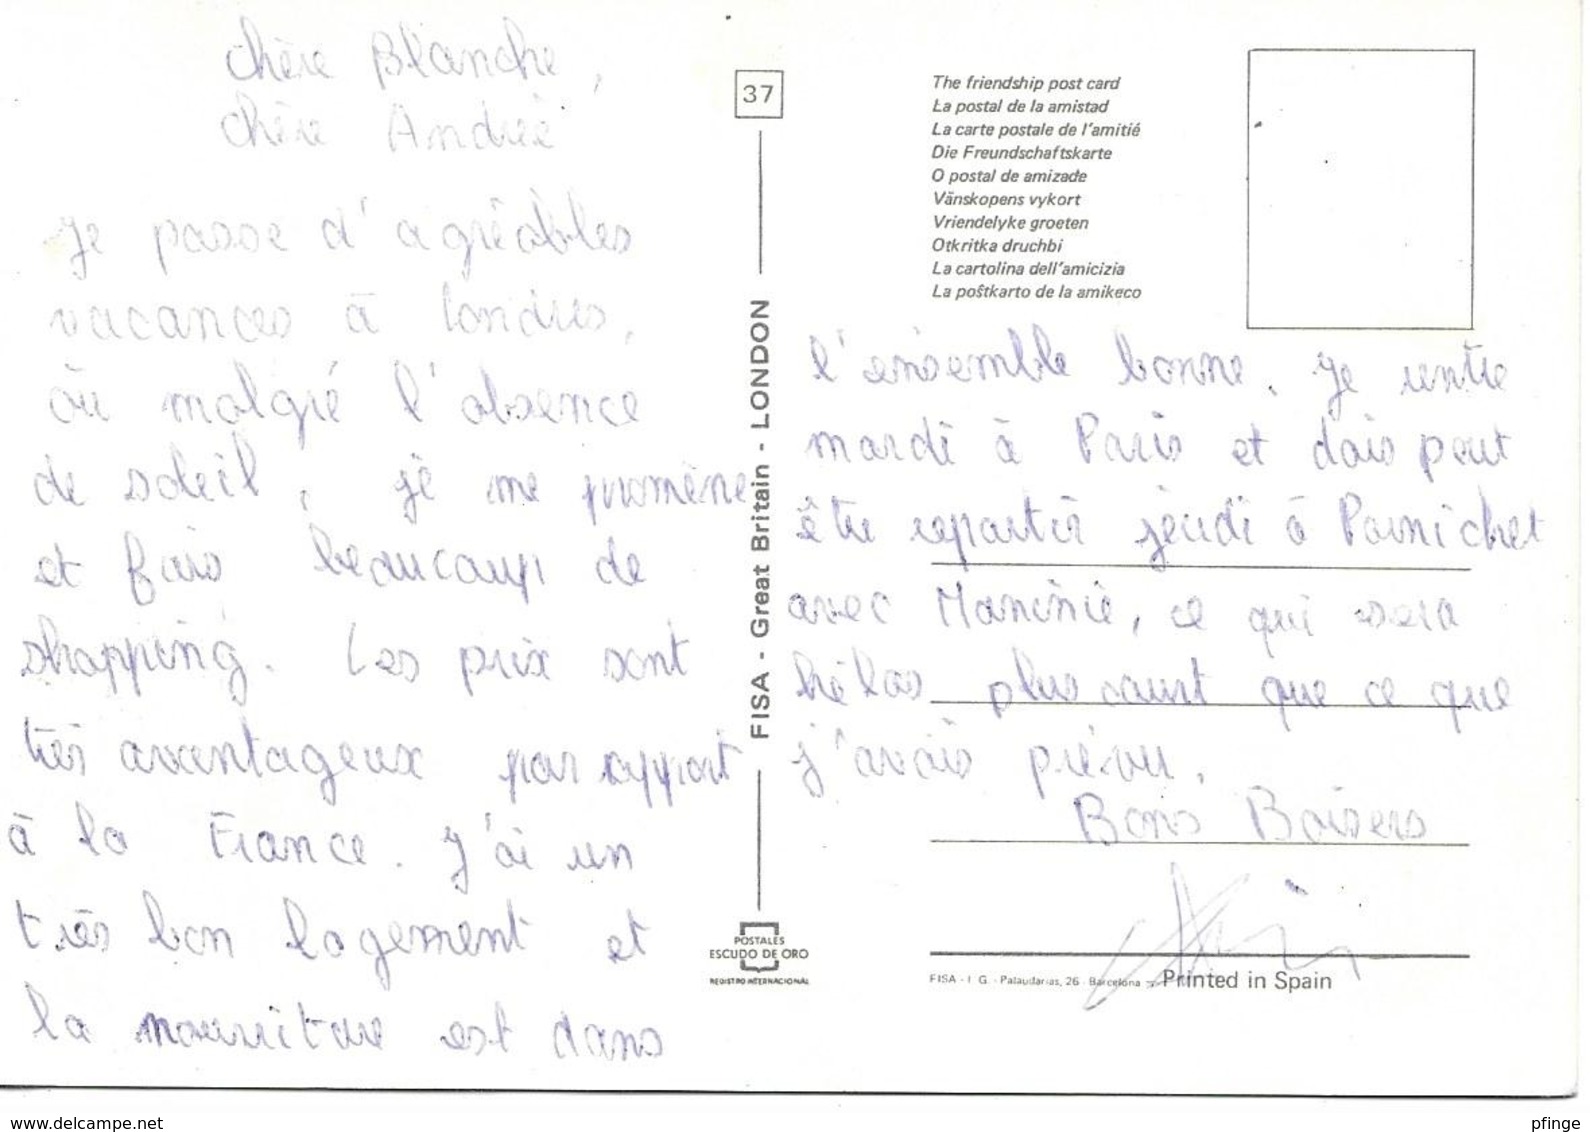 chère Blanche,
chère Andrée
Je passe d'agréables
vacances à Londres,
où malgré l'absence
de soleil, je me promène
et fais beaucoup de
shopping. Les prix sont
très avantageux par rapport
à la France. J'ai un
très bon logement et
la nourriture est dans
37
FISA - Great Britain - LONDON
POSTALES
ESCUDO DE ORO
REGISTRO INTERNACIONAL
The friendship post card
La postal de la amistad
La carte postale de l'amitié
Die Freundschaftskarte
O postal de amizade
Vänskopens vykort
Vriendelyke groeten
Otkritka druchbi
La cartolina dell'amicizia
La poŝtkarto de la amikeco
l'ensemble bonne. Je rentre
mardi à Paris et dois peut
être repartir jeudi à Pornichet
avec Maninie, ce qui sera
hélas plus court que ce que
j'avais prévu.
Bons Baisers
FISA - I. G. - Palaudarias, 26 - Barcelona - Printed in Spain
www.delcampe.net
pfinge